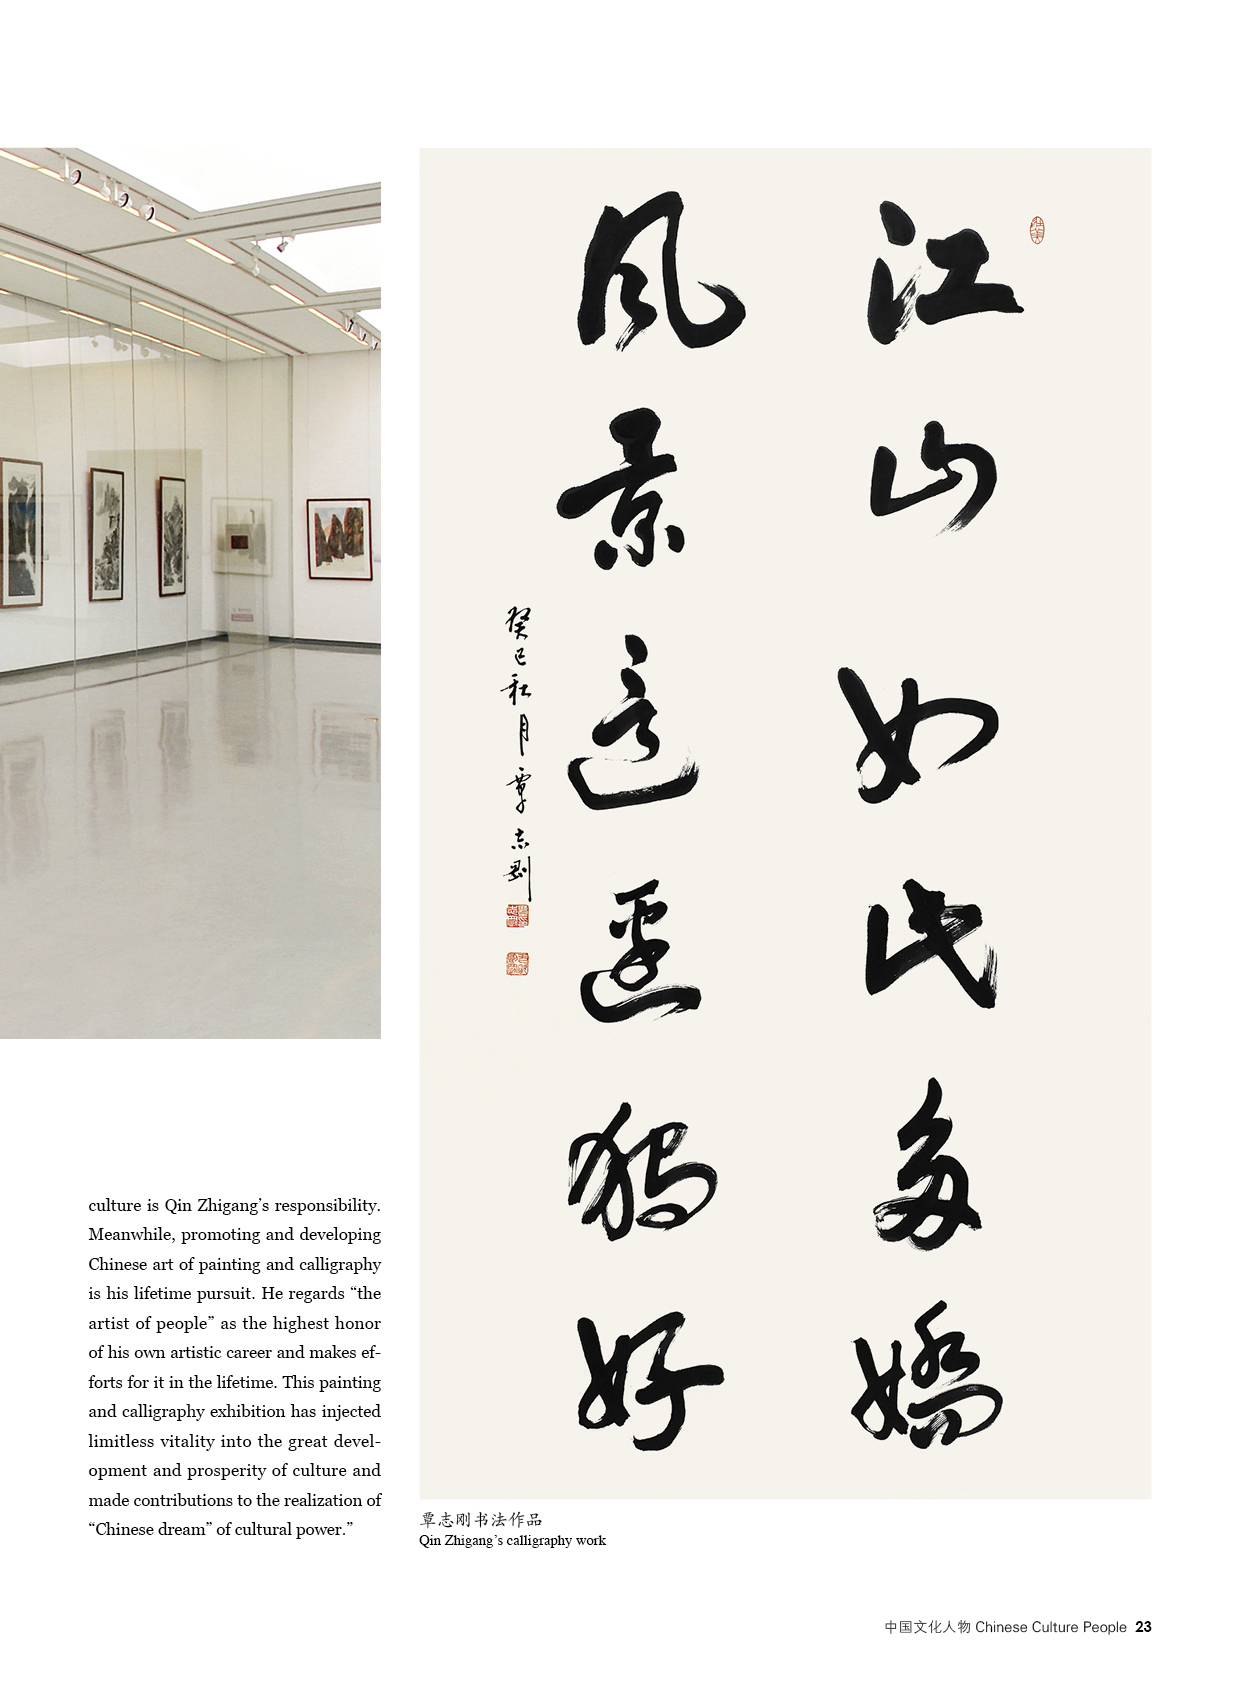 江山如此多嬌
风景這邊獨好
癸巳秋月覃志剛
culture is Qin Zhigang’s responsibility.
Meanwhile, promoting and developing
Chinese art of painting and calligraphy
is his lifetime pursuit. He regards “the
artist of people” as the highest honor
of his own artistic career and makes ef-
forts for it in the lifetime. This painting
and calligraphy exhibition has injected
limitless vitality into the great devel-
opment and prosperity of culture and
made contributions to the realization of
“Chinese dream” of cultural power.”
覃志刚书法作品
Qin Zhigang’s calligraphy work
中国文化人物 Chinese Culture People 23